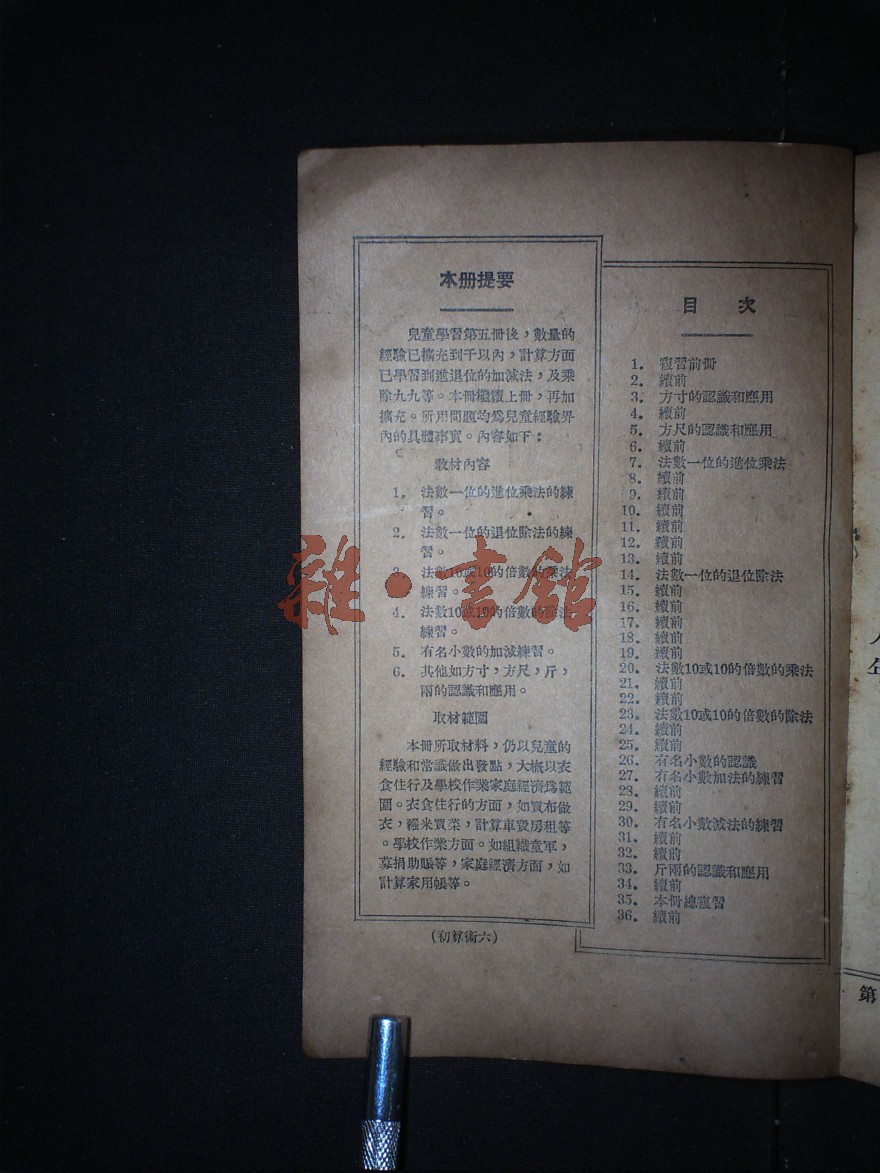 本册提要
兒童學習第五冊後，數量的
經驗已擴充到千以內，計算方面
已學習到進退位的加減法，及乘
除九九等。本冊繼續上冊，再加
擴充。所用問題均爲兒童經驗界
內的具體事實。內容如下：
敎材內容
1. 法數一位的進位乘法的練
習。
2. 法數一位的退位除法的練
習。
3. 法數10或10的倍數的乘法
練習。
4. 法數10或10的倍數的除法
練習。
5. 有名小數的加減練習。
6. 其他如方寸，方尺，斤，
兩的認識和應用。
取材範圍
本冊所取材料，仍以兒童的
經驗和常識做出發點，大概以衣
食住行及學校作業家庭經濟爲範
圍。衣食住行的方面，如買布做
衣，糴米買菜，計算車費房租等
。學校作業方面。如組織童軍，
募捐助賑等，家庭經濟方面，如
計算家用帳等。
(初算術六)
目次
1. 複習前冊
2. 續前
3. 方寸的認識和應用
4. 續前
5. 方尺的認識和應用
6. 續前
7. 法數一位的進位乘法
8. 續前
9. 續前
10. 續前
11. 續前
12. 續前
13. 續前
14. 法數一位的退位除法
15. 續前
16. 續前
17. 續前
18. 續前
19. 續前
20. 法數10或10的倍數的乘法
21. 續前
22. 續前
23. 法數10或10的倍數的除法
24. 續前
25. 續前
26. 有名小數的認識
27. 有名小數加法的練習
28. 續前
29. 續前
30. 有名小數減法的練習
31. 續前
32. 續前
33. 斤兩的認識和應用
34. 續前
35. 本冊總複習
36. 續前
第
雜·書館